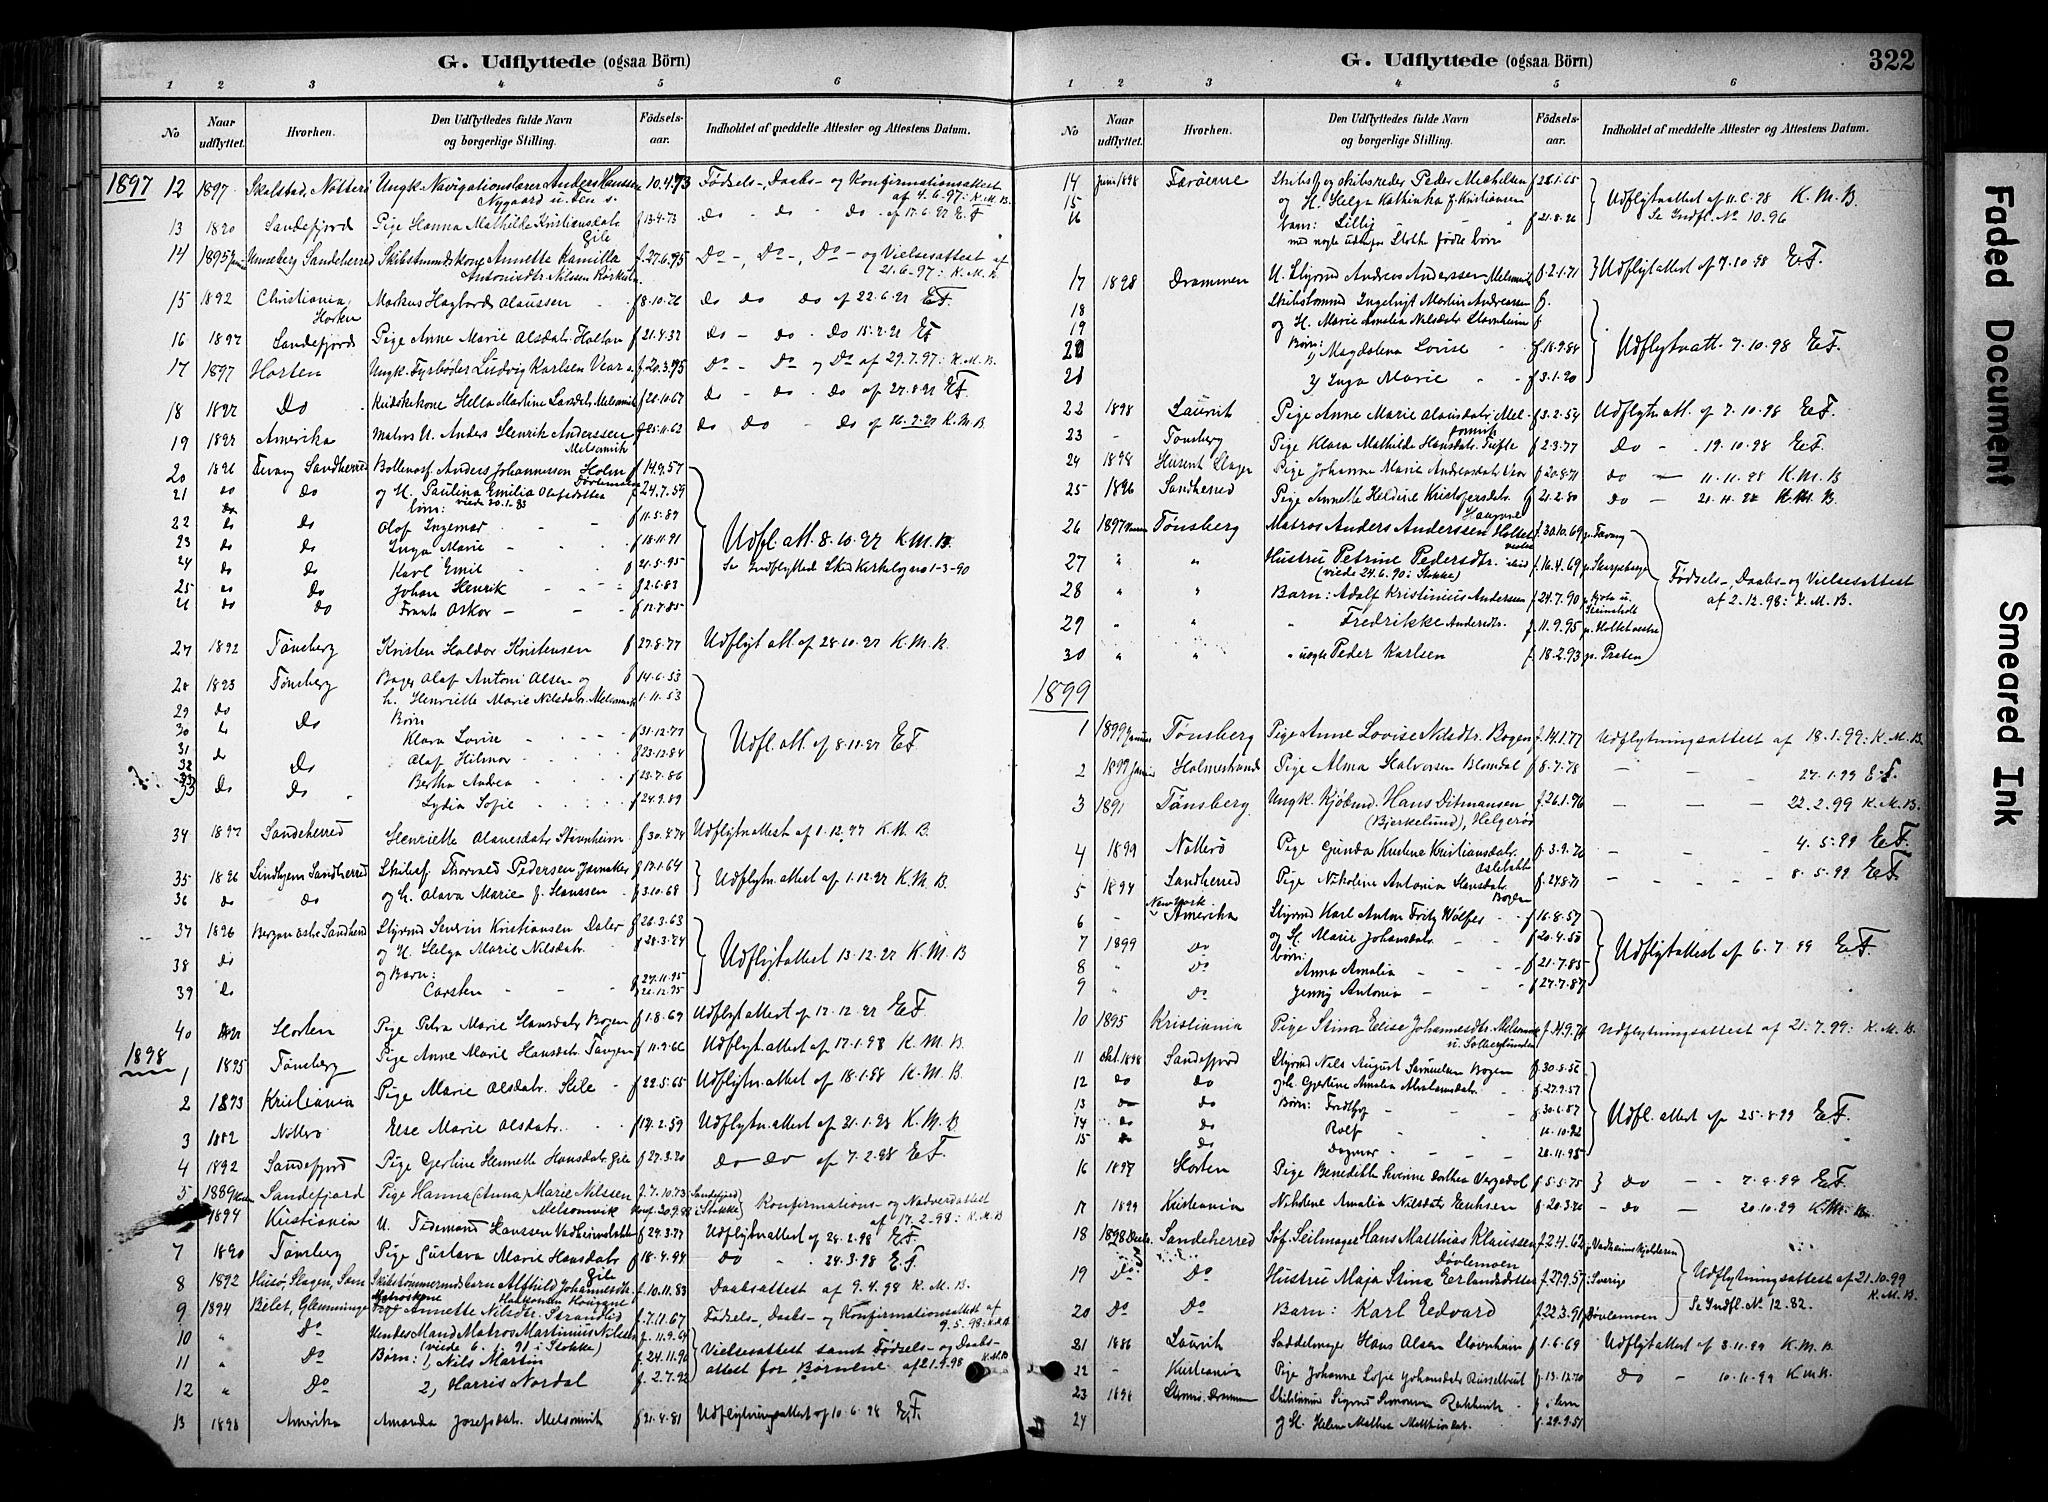 G. Udflyttede (ogsaa Börn)
1 2 3 4 5 6
No Naar udflyttet. Hvorhen. Den Udflyttedes fulde Navn og borgerlige Stilling. Födsels-aar. Indholdet af meddelte Attester og Attestens Datum.
1897 12 1897 Skalstad, Nötterö Ungk. Navigationslærer Anders Hanssen 10.4.73 Födsels-, Daabs- og Konfirmationsattest
Nygaard u. Fen s. af 4.6.97: K.M.B.
13 Sandefjord Pige Hanna Mathilde Kristiansdatr. f 13.4.73 do - do - do - af E.F.
Gile
14 1895 Unneberg Sandeherred Skibstmmdskone Annette Kamilla f. 27.6.75 Do -, Do -, Do - og Vielsesattest af
Antonisdtr. Nilsen 21.6.97: K.M.B.
15 1892 Christiania Markus Hagbard Olaussen f 8.10.76 do do do af 22.6.97 E.F.
16 1897 Sandefjord Pige Anne Marie Olsdatr. Holtan f 21.4.32 do - do - do E.F.
17 1897 Horten Ungk. Fyrböder Ludvig Karlsen Vear f. 20.3.75 Do - Do og Do af 29.7.97: K.M.B.
18 1897 Do Hella Martine Melsomvik f 20.10.67 do - do - do af 27.8.97 E.F.
19 1897 Amerika Matros U. Anders Henrik Anderssen f 25.11.62 do do - do af K.M.B.
Melsomvik
20 1896 Sandherred Anders Johannessen Holm f 14.9.57
21 do do og H. Paulina Emilia Olafsdotter f. 24.7.59
do börn: viede 20.1.83
22 do do Olof Ingemar f 11.5.89 Udfl. att. 8.10.97 K.M.B.
23 do do Inga Marie f 18.11.91
24 do do Karl Emil f 21.5.95
25 do do Johan Henrik f 2.6.83
do do Frants Oskar f 12.7.85
27 1892 Tønsberg Kristen Haldor Kristensen f 27.8.77 Udflytatt. af 28.10.97 K.M.B.
28 1893 Tønsberg Bager Olaf Antoni Olsen og f 14.6.53
29 do h. Henriette Marie Nilsdatr. Melsomvik 1.11.53
30 Do Börn
31 do Klara Lovise f 31.12.77 Udfl. att. af 8.11.97 E.F.
32 Do Olaf Hilmar f 23.12.84
33 do do Bertha Andrea f 23.7.86
Lydia Sofie f 24.9.89
34 1897 Sandeherred Henriette Stovnheim f 30.4.74 Udflytnattest af 1.12.97 K.M.B.
35 1896 Lindhjem Sandherred Thorvald Pedersen f 17.1.64 Udflytn. attest af 1.12.97 K.M.B.
36 do do og h. Olava Marie f. Hanssen f 31.10.68
37 1896 Styrmd Severin Kristiansen f 26.3.63
38 do og H. Helga Marie Nilsdatr. f 28.3.74 Udflytattest 13.12.97 K.M.B.
og Barn:
39 do Carsten f 27.11.95
40 Horten Pige Petra Marie Hansdatr Bogen f 1.8.69 Udflytattest af 17.12.97 E.F.
1898
1 1895 Tønsberg Pige Anne Marie Hansdatr. f 11.9.66 Udflytn. attest af 17.1.98 K.M.B.
2 1893 Kristiania Pige Marie Olsdatr. Gile f 22.5.65 Udflytn. attest af 18.1.98 K.M.B.
3 1882 Nötterö Else Marie Olsdatr. f 17.2.59 Udflytn. attest af 21.1.98 K.M.B.
4 1892 Sandefjord Pige Gjertine Hennette Hansdatr. Gile f 27.3.20 do do af 7.2.98 E.F.
5 1889 Sandefjord Pige Hanna (Anna) Marie Nilssen f. 7.10.73 Sandefjord Konfirmations- og Nadverdattest
Melsomvik konf. 30.9.88 i Stokke af 17.2.98: K.M.B.
1894 Kristiania U. Tidemand Hanssen f 24.3.77 Udflytattest af 28.2.98 E.F.
7 1890 Tønsberg Pige Gustava Marie Hansdatr. f 18.4.44 do - 24.3.98 E.F.
Gile
8 1892 Husö, Slagen, Sem Skibstømmermdsbarn Alfhild Johannesdtr. f. 10.11.83 Daabsattest af 9.4.98 K.M.B.
9 1894 Glemminge Annette Nilsdtr. Strandlid f. 7.11.67 Födsels-, Daabs- og Konfirmationsattest af
9.5.98: K.M.B.
10 " Do Hendes Mand Matros Martinius Nilssen f. 11.9.69 Vielsesattest samt Födsels- og Daabs-
(viede 6.1.91 i Stokke)
11 " Do Börn: 1, Nils Martin f. 24.11.90 attest for Börnene af 21.4.98 K.M.B.
12 " Do 2, Harris Nordal f. 2.7.92
13 1898 Amerika Amanda Josefsdatr. Melsomvik f 21.4.81 Udflytningsattest af 10.6.98 E.F.
G. Udflyttede (ogsaa Börn) 322
1 2 3 4 5 6
No Naar udflyttet. Hvorhen. Den Udflyttedes fulde Navn og borgerlige Stilling. Födsels-aar. Indholdet af meddelte Attester og Attestens Datum.
14 Juni 1898 Færöerne Skibsf. og skibsreder Peder Michelsen f 28.1.65
15 og H. Helga Kathinka f. Kristiansen Udflytattest af 11.6.98 K.M.B.
16 barn: Lillij f 21.8.96 Se Indfl. No 10.96
17 1898 Drammen U. Styrmd Andreas Anderssen Melsomvik f 2.1.71 Udflytattest af 7.10.98 E.F.
18 Skibstømmd Ingebrigt Martin Andreassen f.
19 og H. Marie Amalia Nilsdatr Stovnheim f
20 Börn: 1/ Magdalena Lovise f 18.9.84 Udflytnatt. 7.10.98 E.F.
21 2/ Inga Marie f 3.1.90
22 1898 Laurvik Pige Anne Marie Olausdatr. Mel- f 3.2.54 Udflytn. att. af 7.10.98 E.F.
somvik
23 - Tønsberg Pige Klara Mathilde Hansdatr. Tufte f 2.3.77 do - 19.10.98 E.F.
24 1898 Pige Johanne Marie Andreasdatr. Vear f 20.8.71 do - 11.11.98 K.M.B.
25 1896 Sandherred Pige Annette Heldine Kristofersdatr. f 21.2.80 do - 21.11.98 K.M.B.
Haugane
26 1897 Tønsberg Matros Anders Anderssen f. 30.10.69
27 " " Hustru Petrine Pedersdtr. f. 16.4.69
(viede 24.6.90 i Stokke) Födsels-, Daabs- og Vielsesattest
28 " " Barn: Adolf Kristinius Anderssen f. 24.7.90 af 2.12.98: K.M.B.
29 " " " Fredrikke Andersdtr. f. 11.9.95
30 " " " uægte Peder Karlsen f. 18.2.93 p. Præten
1899
1 1899 Januar Tønsberg Pige Anne Lovise Nilsdtr. Bogen f. 14.1.77 Udflytningsattest af 18.1.99: K.M.B.
2 1899 Januar Holmestrand Pige Alma Halvorsen Blomdal f 8.7.78 - - 27.1.99 E.F.
3 1891 Tønsberg Ungk. Kjöbmd. Hans Ditmansen f. 26.1.76 - - 22.2.99 K.M.B.
(Bjerkelund), Helgerød
4 1899 Nötterö Pige Gunda Kristiansdatr. f. 3.9.76 - - 4.5.99 E.F.
5 1894 Sandherred Pige Nikoline Antonia Hansdatr. f. 24.8.71 - - 8.5.99 E.F.
Bogen
6 - New York Amerika Styrmd Karl Anton Fritz Wölfes f 16.8.57
7 1899 Do og H. Marie Johansdatr. f 20.4.58 Udflytattest af 6.7.99 E.F.
börn:
8 " Do Anna Amalia f 21.7.85
9 " Do Jenny Antonia f 27.7.87
10 1895 Kristiania Pige Stina Elise Johannesdtr. Melsomvik f. 14.9.76 Udflytningsattest af 21.7.99: K.M.B.
11 Okt. 1898 Sandefjord Styrmd Nils August Samuelsen Bogen f 30.8.56
12 do do og h. Gjertine Amalia Abrahamsdatr. f. 27.9.57
13 do do Börn: Fridthjof f. 30.6.87 Udfl. attest af 25.8.99 E.F.
14 do do Rolf 16.10.92
15 do do Dagmar 28.11.95
16 1897 Horten Pige Benedikte Severine Dorthea f. 5.5.75 do - - 7.9.99 E.F.
17 1899 Kristiania Nikoline Amalia Nilsdatr Eriksen f. 20.3.76 - do - 20.10.99 K.M.B.
18 1898 Decbr. Sandeherred Söf. Seilmager Hans Matthias Klaussen f. 2.11.62
Døvlemoen
19 Do Do Hustru Maja Stina Erlandsdotter f. 27.9.57 i Sverige Udflytningsattest af 21.10.99
K.M.B.
20 Do Do Barn: Karl Edvard f. 22.3.91 Døvlemoen Se Indfl. No 12.82.
21 1886 Laurvik Saddelmager Hans Olsen Stovnheim f 1.6.69 Udflytattest af 8.11.99 K.M.B.
22 - Kristiania Pige Johanne Sofie Johansdatr f. 13.12.70 do - 10.11.99 K.M.B.
23 1898 Sigurd Simonsen f.
24 og H. Helene Mathea Matthisdatr. f. 29.9.51
Faded Document
Smeared Ink